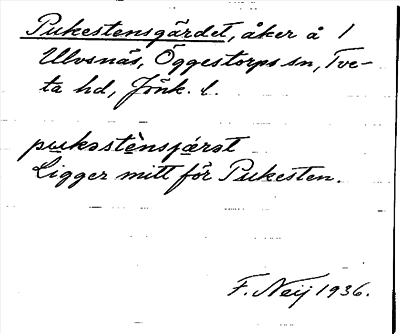 Pukestensgärdet, åker å 1
Ulvsnäs, Öggestorps sn, Tve-
ta hd, Jönk. l.
pukəstènsjæ̣rət
Ligger mitt för Pukesten.
F. Neij 1936.